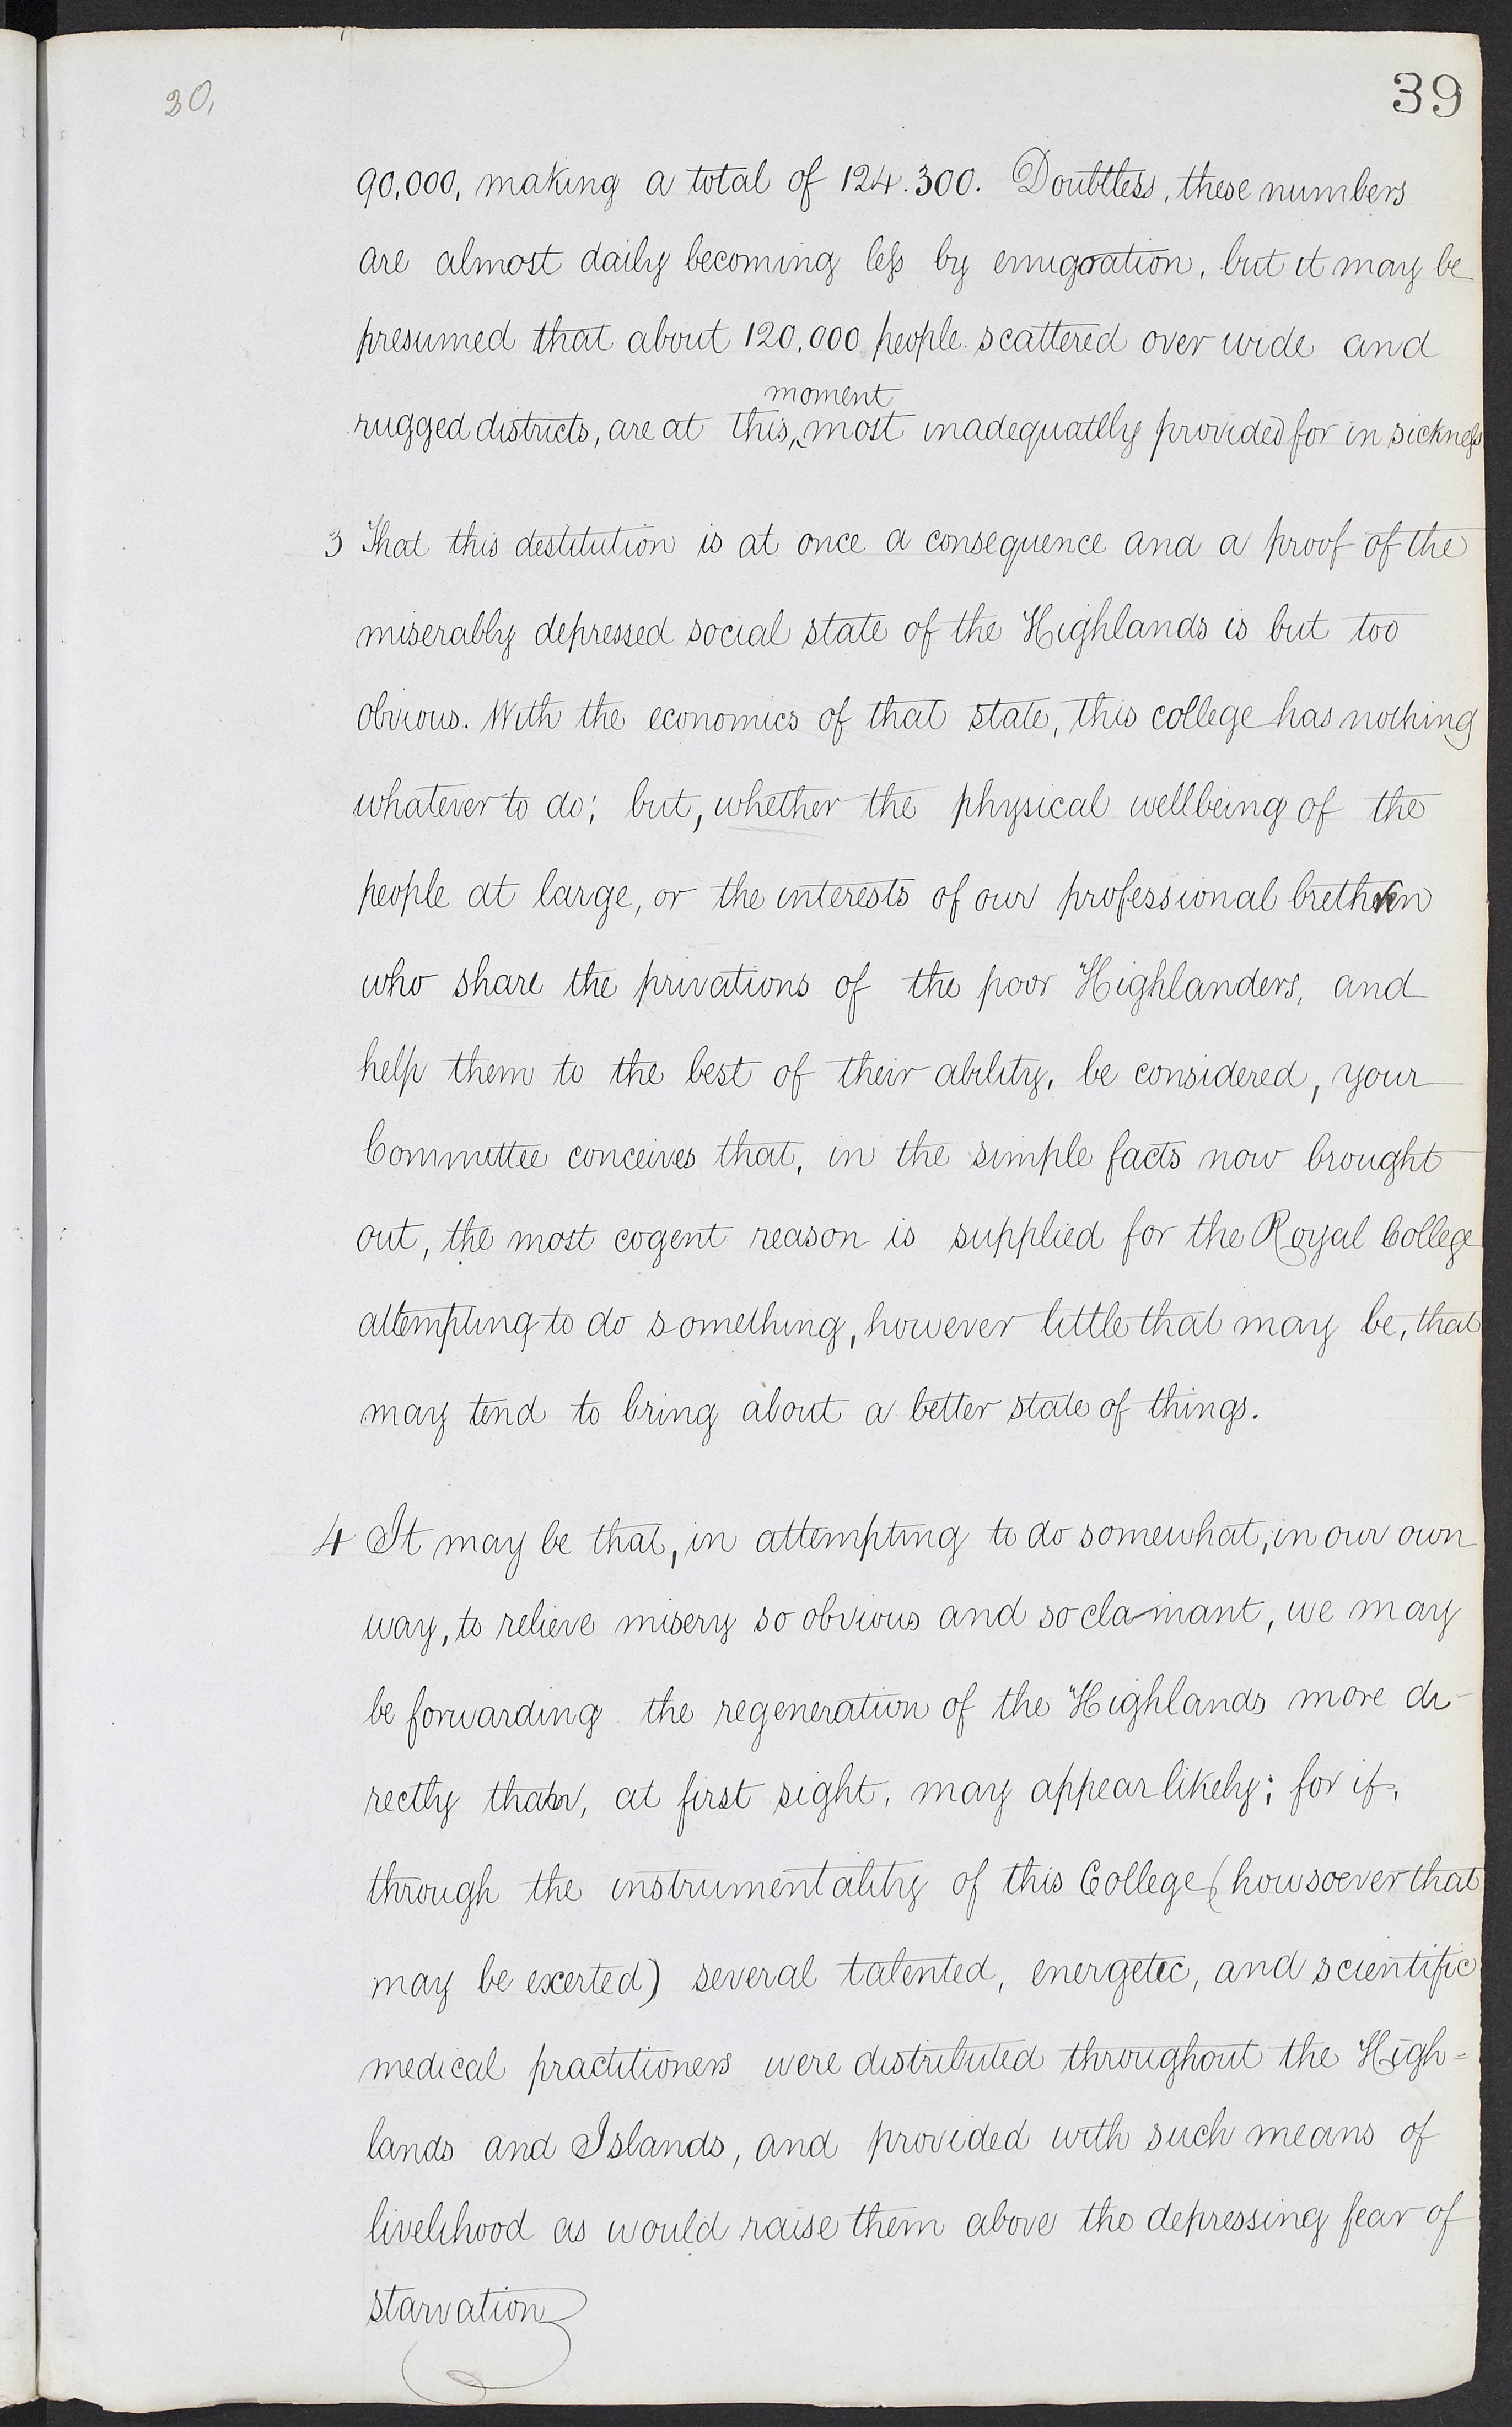 30,
39
90,000, making a total of 124.300. Doubtless, these numbers
are almost daily becoming less by emigration, but it may be
presumed that about 120,000 people scattered over wide and
moment
rugged districts, are at this, most inadequatlly provided for in sickness
3 That this destitution is at once a consequence and a proof of the
miserably depressed social state of the Highlands is but too
obvious. With the economics of that state, this college has nothing
whatever to do; but, whether the physical wellbeing of the
people at large, or the interests of our professional brethren
who share the privations of the poor Highlanders, and
help them to the best of their ability, be considered, your
Committee conceives that, in the simple facts now brought
out, the most cogent reason is supplied for the Royal College
attempting to do something, however little that may be, that
may tend to bring about a better state of things.
4 It may be that, in attempting to do somewhat, in our own
way, to relieve misery so obvious and so clamant, we may
be forwarding the regeneration of the Highlands more di-
rectly than, at first sight, may appear likely; for if,
through the instrumentality of this College (howsoever that
may be exerted) several talented, energetic, and scientific
medical practitioners were distributed throughout the High=
lands and Islands, and provided with such means of
livelihood as would raise them above the depressing fear of
starvation